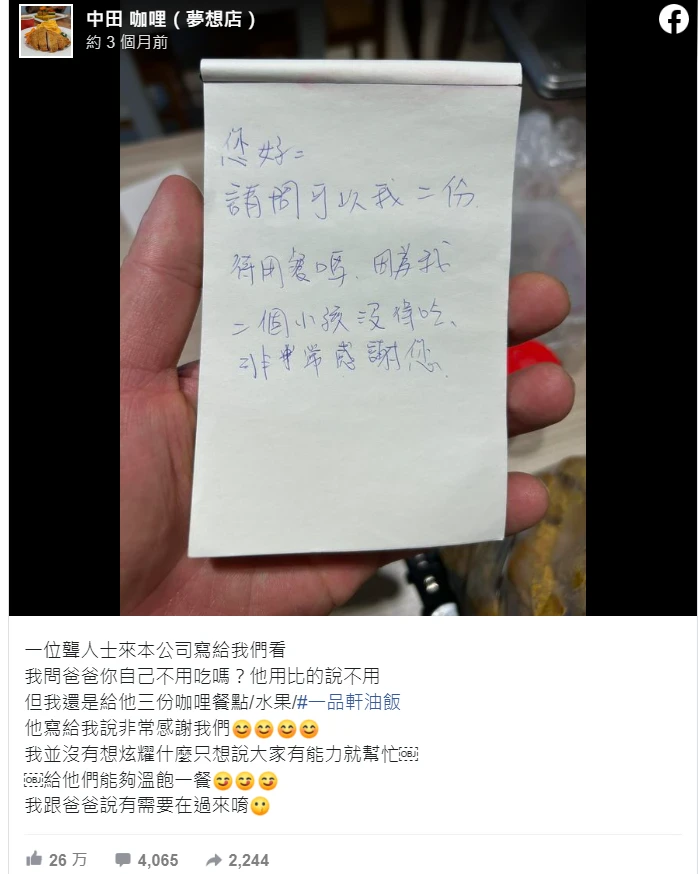 中田 咖哩 ( 夢想店 )
約 3 個月前
您好=
請問可以我二份
待用餐嗎.因為我
二個小孩沒得吃、
非常感謝您
一位聾人士來本公司寫給我們看
我問爸爸你自己不用吃嗎？他用比的說不用
但我還是給他三份咖哩餐點/水果/#一品軒油飯
他寫給我說非常感謝我們😊😊😊😊
我並沒有想炫耀什麼只想說大家有能力就幫忙￼
￼給他們能夠溫飽一餐😋😋😋
我跟爸爸說有需要在過來唷🤭
26 萬 4,065 2,244